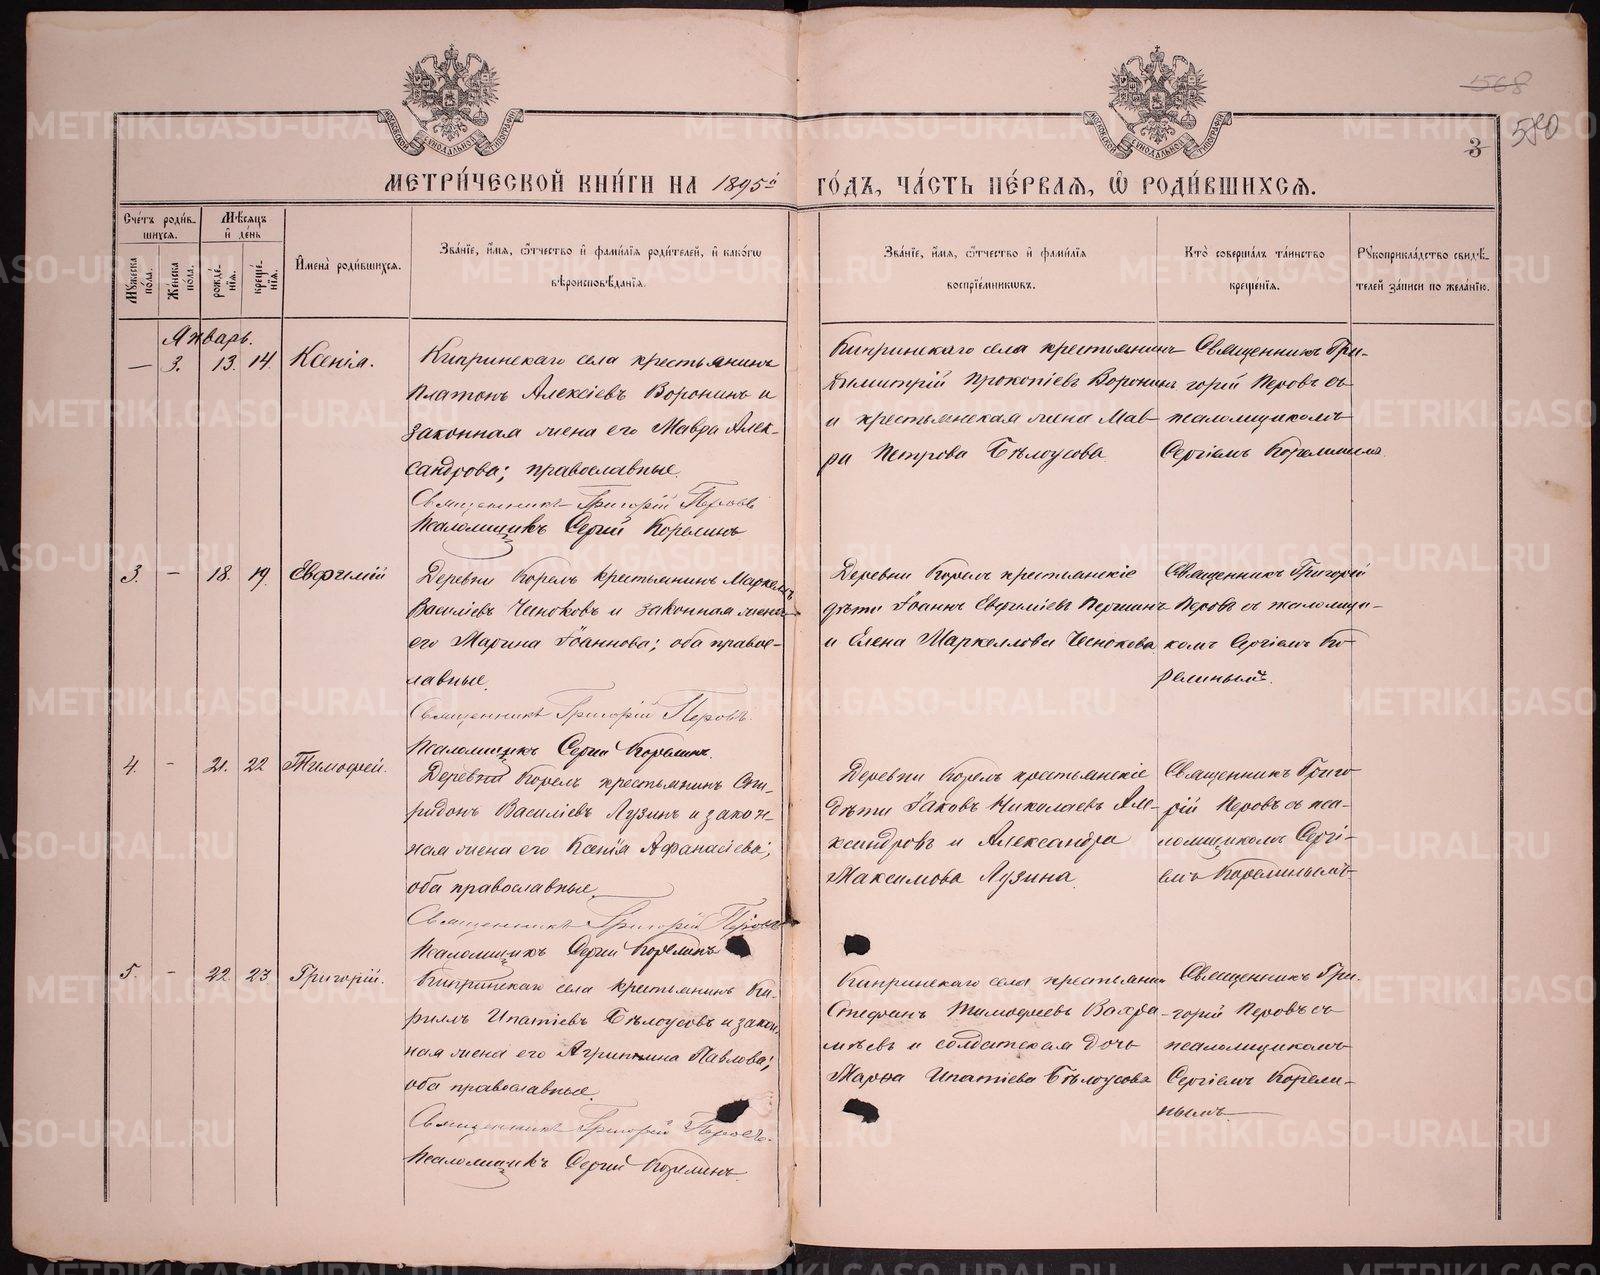 568
580
3
МОСКОВСКОЙ СѴНОДАЛЬНОЙ ТИПОГРАФІИ
МОСКОВСКОЙ СѴНОДАЛЬНОЙ ТИПОГРАФІИ
МЕТРИ́ЧЕСКОЙ КНИ́ГИ НА 1895й ГО́ДЪ, ЧА́СТЬ ПЕ́РВАѦ, Ѡ РОДИ́ВШИХСѦ.
Сче́тъ роди́в-
шихсѧ.
Мѣ́сѧцъ
и҆ де́нь
Мꙋ́жеска
по́ла.
Же́нска
по́ла.
рожде́-
нїѧ.
креще́-
нїѧ.
И҆мена̀ роди́вшихсѧ.
Зва́нїе, и҆́мѧ, ѻ҆́тчество и҆ фами́лїѧ роди́телей, и҆ како́гѡ
вѣроисповѣ́данїѧ.
Зва́нїе, и҆́мѧ, ѻ҆́тчество и҆ фами́лїѧ
воспрїе́мникѡвъ.
Кто̀ соверша́лъ та́инство
креще́нїѧ.
Рꙋкоприкла́дство свидѣ́-
телей за́писи по жела́нїю.
Январь.
— 3. 13. 14. Ксенія.
Кипринскаго села крестьянинъ
Платонъ Алексіевъ Воронинъ и
законная жена его Мавра Алек-
сандрова; православные.
Священникъ Григорій Перовъ
Псаломщикъ Сергій Корелинъ
Кипринскаго села крестьянинъ
Димитрій Прокопіевъ Воронинъ
и крестьянская жена Мав-
ра Петрова Бѣлоусова
Священникъ Гри-
горій Перовъ съ
псаломщикомъ
Сергіемъ Корелинымъ
3. - 18. 19. Евфимій
Деревни Корелъ крестьянинъ Маркелъ
Василіевъ Чесноковъ и законная жена
его Марина Іоаннова; оба правос-
лавные.
Священникъ Григорій Перовъ.
Псаломщикъ Сергій Корелинъ.
Деревни Корелъ крестьянскіе
дѣти Іоаннъ Евфиміевъ Першинъ
и Елена Маркеллова Чеснокова
Священникъ Григорій
Перовъ съ псаломщи-
комъ Сергіемъ Ко-
релинымъ.
4. - 21. 22 Тимофей.
Деревни Корелъ крестьянинъ Спи-
ридонъ Василіевъ Лузинъ и закон-
ная жена его Ксенія Афанасіева;
оба православные.
Священникъ Григорій Перовъ
Псаломщикъ Сергій Корелинъ
Деревни Корелъ крестьянскіе
дѣти Іаковъ Николаевъ Але-
ксандровъ и Александра
Максимова Лузина.
Священникъ Григо-
рій Перовъ съ пса-
ломщикомъ Сергі-
емъ Корелинымъ
5. - 22. 23 Григорій.
Кипринскаго села крестьянинъ Ки-
риллъ Ипатіевъ Бѣлоусовъ и закон-
ная жена его Агрипина Павлова;
оба православные.
Священникъ Григорій Перовъ.
Псаломщикъ Сергій Корелинъ.
Кипринскаго села крестьянинъ
Стефанъ Тимофеевъ Вахра-
мѣевъ и солдатская дочь
Марѳа Ипатіева Бѣлоусова
Священникъ Гри-
горій Перовъ съ
псаломщикомъ
Сергіемъ Корели-
нымъ
METRIKI.GASO-URAL.RU